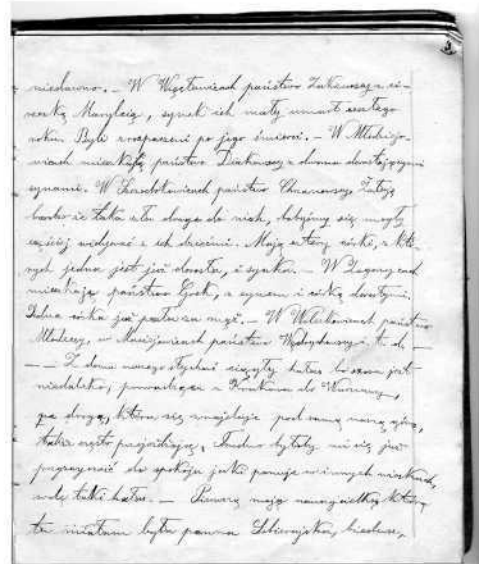 3.
niedawno. – W Więcławicach państwo Zakrzewscy z có-
reczką Marylcią, synek ich mały umarł zeszłego
roku. Byli zrozpaczeni po jego śmierci. – W Młodziejo-
wicach mieszkają państwo z dwoma dorastającymi
synami. W państwo Żałuję
bardzo że taka zła droga do nich, bobyśmy się mogły
częściej widywać z ich dziećmi. Mają cztery córki, z któ-
rych jedna jest już dorosła, i synka. – W
mieszkają państwo z synem i córką dorosłymi.
Jedna córka już poszła za mąż. – W państwo
w Maciejowicach państwo i t. d. –
– – Z domu naszego słychać ciągły hałas bo szosa jest
niedaleko, prowadząca z Krakowa do Warszawy,
po drogą, która się znajduje pod samą naszą górą,
także często przejeżdżają. Trudno byłoby mi się już
przyzwyczaić do spokoju jaki panuje w innych wioskach,
wolę taki hałas. – Pierwszą moją nauczycielką którą
tu miałam była panna